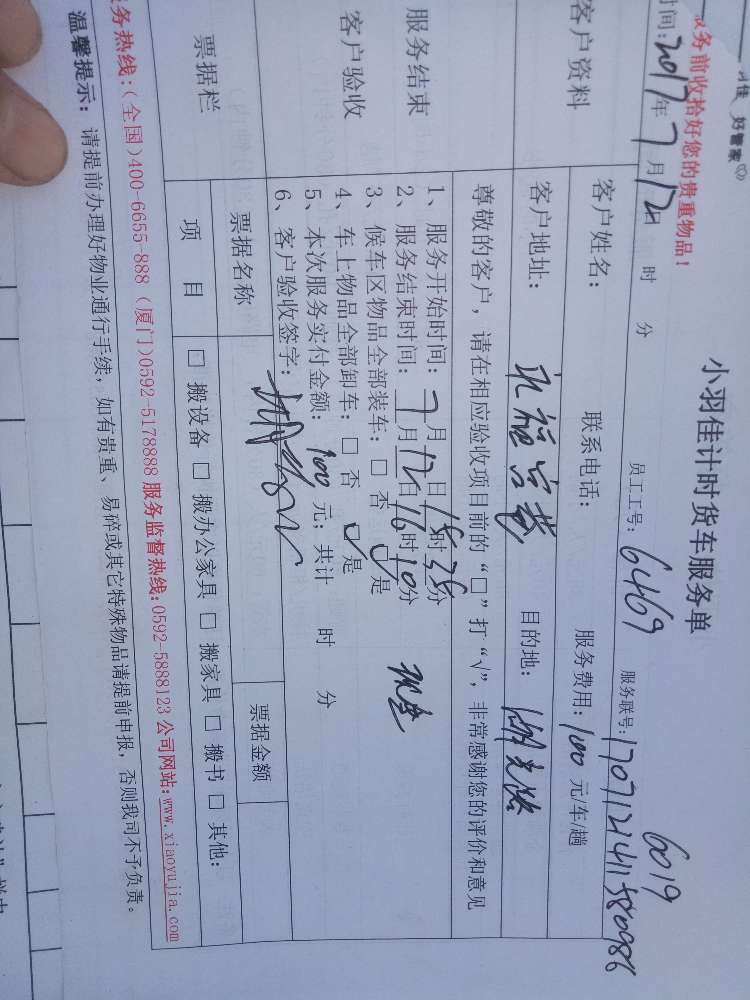 好管家
务前收拾好您的贵重物品!
小羽佳计时货车服务单
6019
间:2017年7月12日 时 分 员工工号:6469 服务联号:1707121411580986
客户资料
客户姓名: 联系电话: 服务费用:100元/车/趟
客户地址: 目的地:
尊敬的客户,请在相应验收项目前的“□”打“√”,非常感谢您的评价和意见
服务结束
客户验收
1、服务开始时间:7月12日15时25分
2、服务结束时间:7月12日16时10分
3、候车区物品全部装车:□ 否 ☑是
4、车上物品全部卸车:□ 否 ☑是
5、本次服务实付金额:100元;共计 时 分
6、客户验收签字:
票据栏
票据名称 票据金额
项 目 □ 搬设备 □ 搬办公家具 □ 搬家具 □ 搬书 □ 其他:
务热线:(全国)400-6655-888 (厦门)0592-5178888 服务监督热线:0592-5888123 公司网站:www.xiaoyujia.com
温馨提示: 请提前办理好物业通行手续,如有贵重、易碎或其它特殊物品请提前申报,否则我司不予负责。